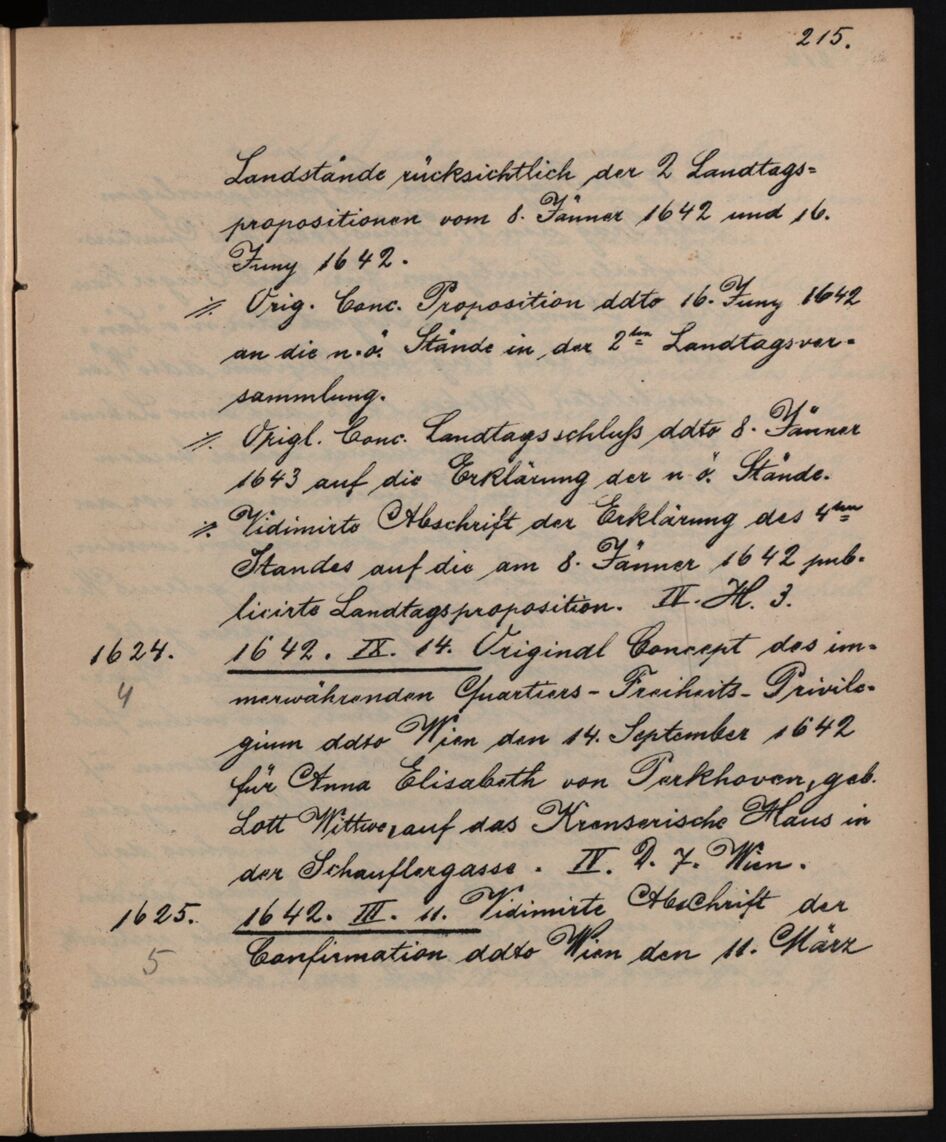 215.
Landstände rücksichtlich der 2 Landtags=
propositionen vom 8. Jänner 1642 und 16.
Juny 1642.
./. Orig. Conc. Proposition ddto 16. Juny 1642
an die n.ö. Stände in der 2ten Landtagsver=
sammlung.
./. Origl. Conc. Landtagsschluß ddto 8. Jänner
1643 auf die Erklärung der n ö. Stände.
./. Vidimirte Abschrift der Erklärung des 4ten
Standes auf die am 8. Jänner 1642 pub=
licirte Landtagsproposition. IV. H. 3.
1624. 1642. IX. 14. Original Concept des im=
4 merwährenden Quartiers-Freiheits-Privile=
gium ddto Wien den 14. September 1642
für Anna Elisabeth von Perkhoven, geb.
Lott Wittwe, auf das Krenserische Haus in
der Schauflergasse. IV. D. 7. Wien.
1625. 1642. III. 11. Vidimirte Abschrift der
5 Confirmation ddto Wien den 11. März